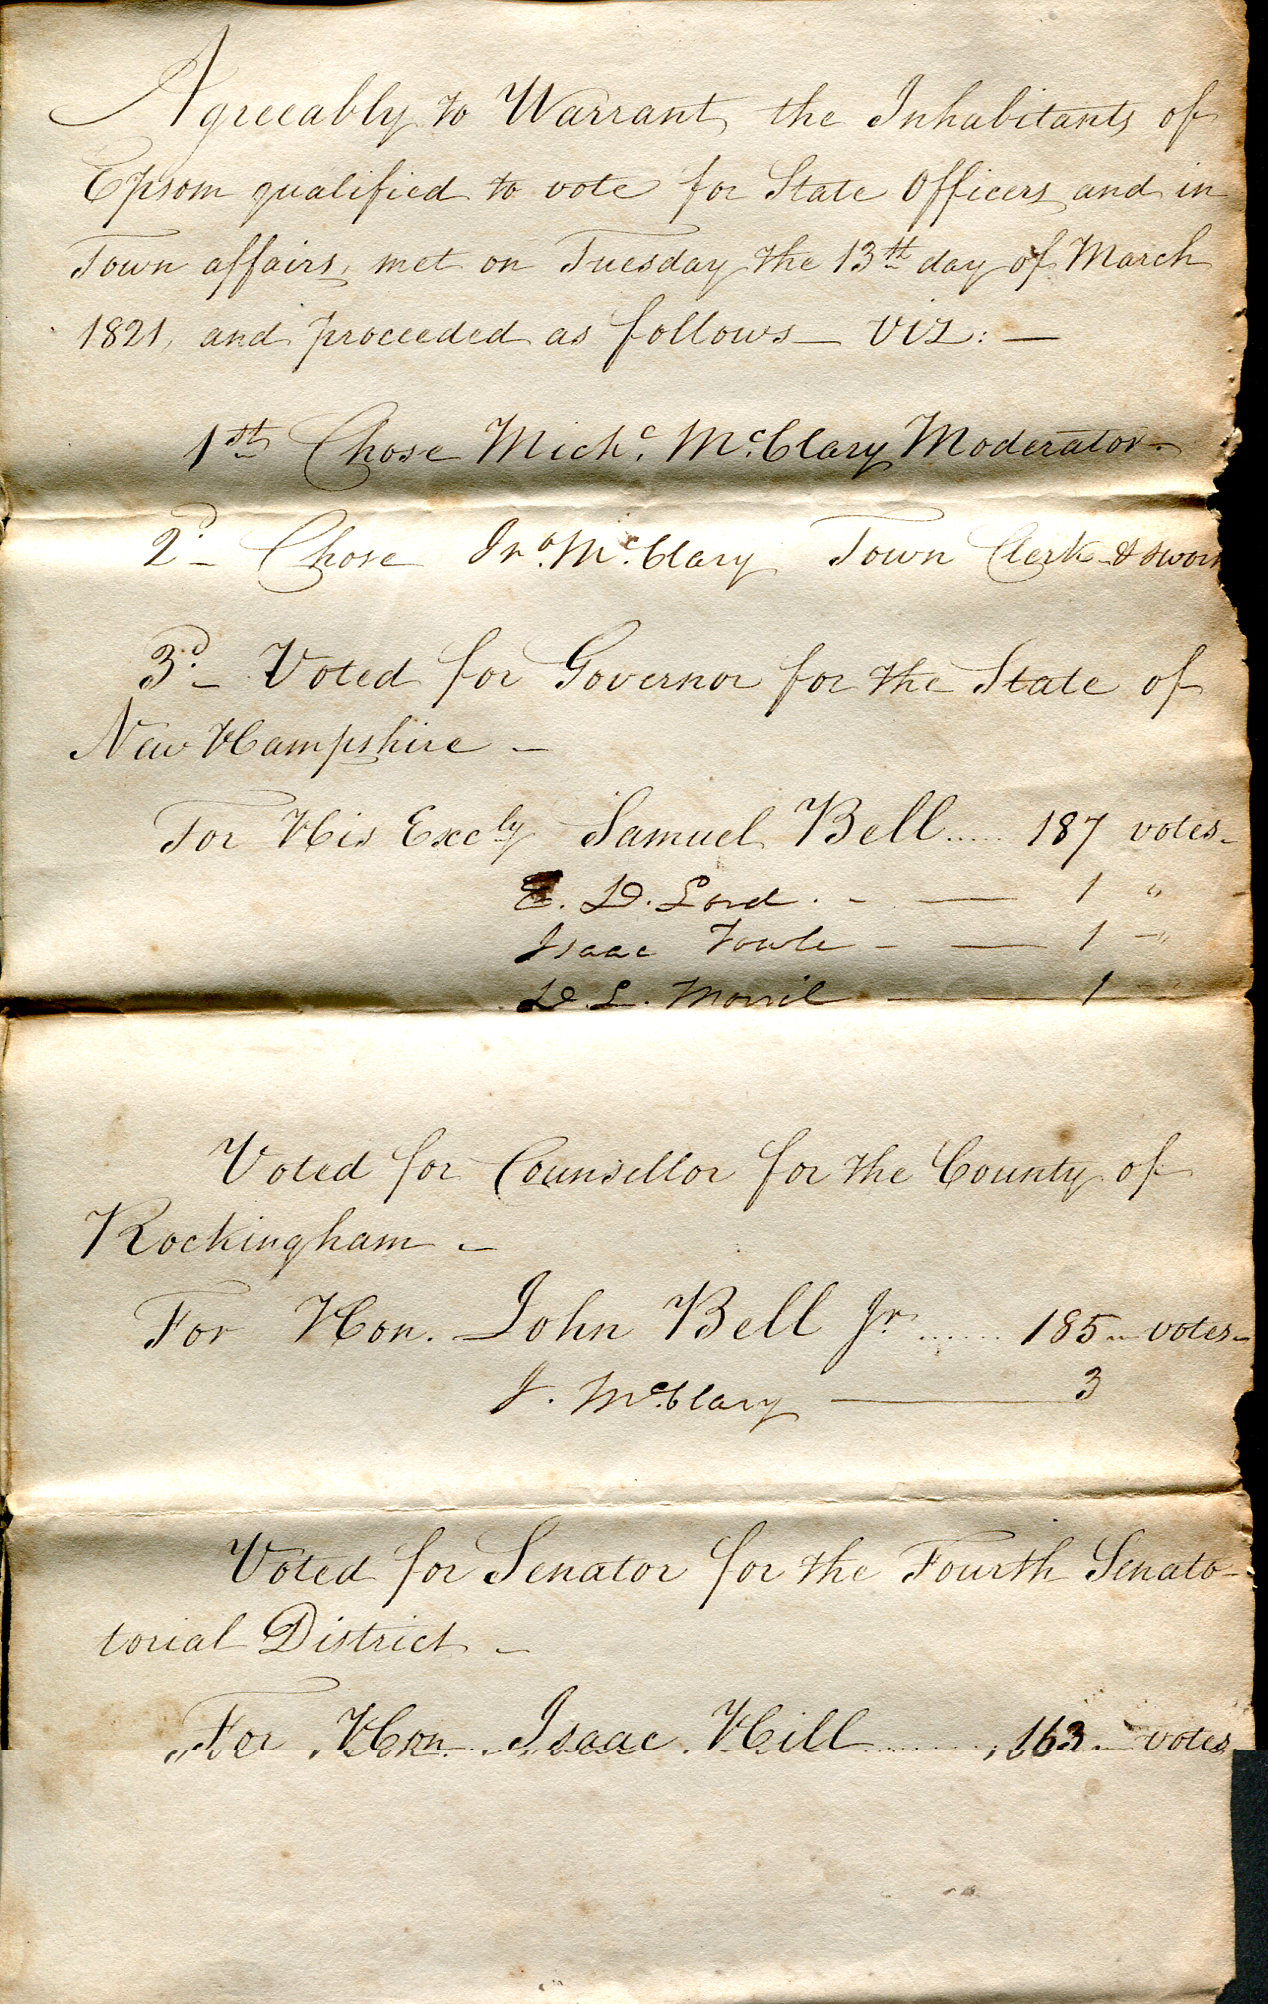 Agreeably to Warrant, the Inhabitants of
Epsom qualified to vote for State Officers, and in
Town affairs, met on Tuesday the 13th day of March
1821, and proceeded as follows — viz: —
1st Chose Michc. McClary Moderator —
2d — Chose Jno. McClary Town Clerk & sworn
3d — Voted for Governor for the State of
New Hampshire —
For His Excly Samuel Bell ..... 187 votes —
E. D. Lord. - — 1 "
Isaac Towle - — 1 — "
D. L. Morril — — 1 — "
Voted for Counsellor for the County of
Rockingham —
For Hon. John Bell Jr. ...... 185 — votes —
J. McClary — 3
Voted for Senator for the Fourth Senato-
torial District —
For Hon Isaac Hill ......... 163 — votes